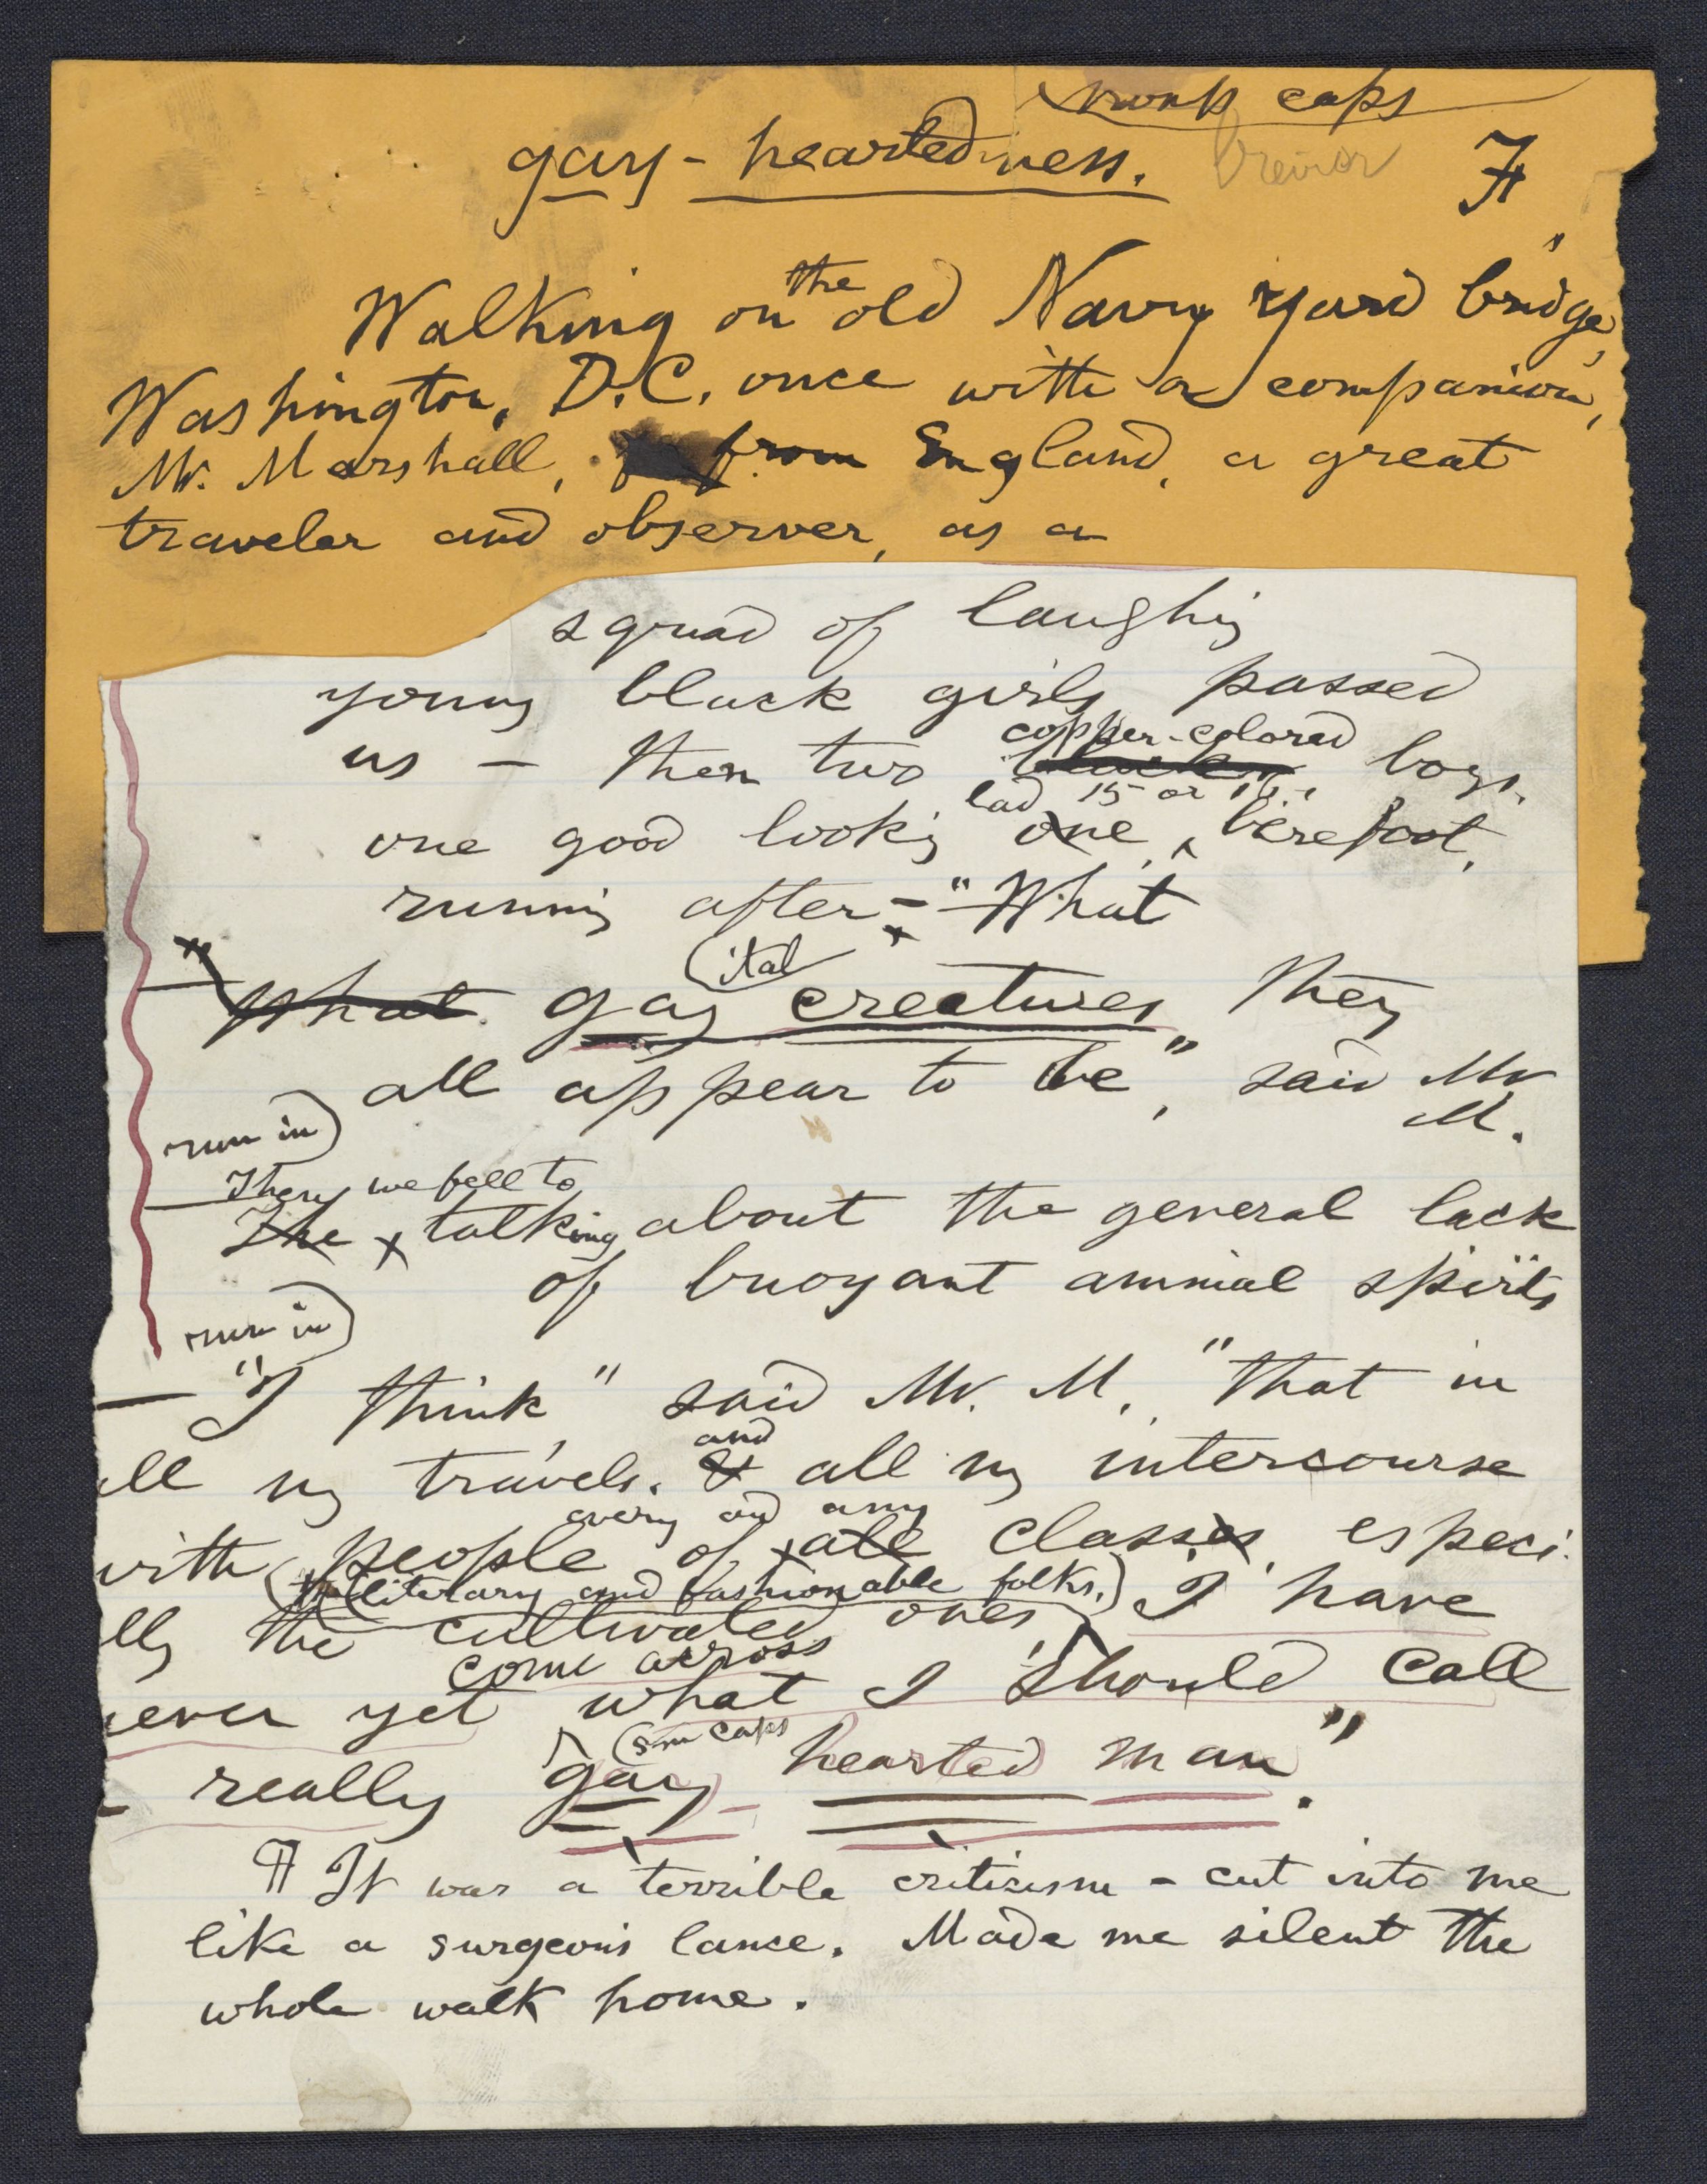 caps
gay-heartedness.
Walking on the old Navy Yard bridge,
Washington, D.C. once with a companion,
Mr. Marshall, from England, a great
traveler and observer, as a
squad of laughig
young black girls passed
copper-colored
us — then two black boys,
lad 15 or 16,
one good lookig one, berefoot,
runnig after — "What
ital
What gay creatures they
all appear to be," said Mr
M.
run in
Then we fell to
The talking about the general lack
of buoyant animal spirits
run in
— "I think," said Mr. M., "that in
all my travels. & all my intercourse
and
every and any
with people of all classes, especi
literary and fashionable folks, I have
lly the cultivated ones,
come across
never yet what I should call
sm caps
really gay-hearted man".
¶ It was a terrible criticism - cut into me
like a surgeon's lance. Made me silent the
whole walk home.